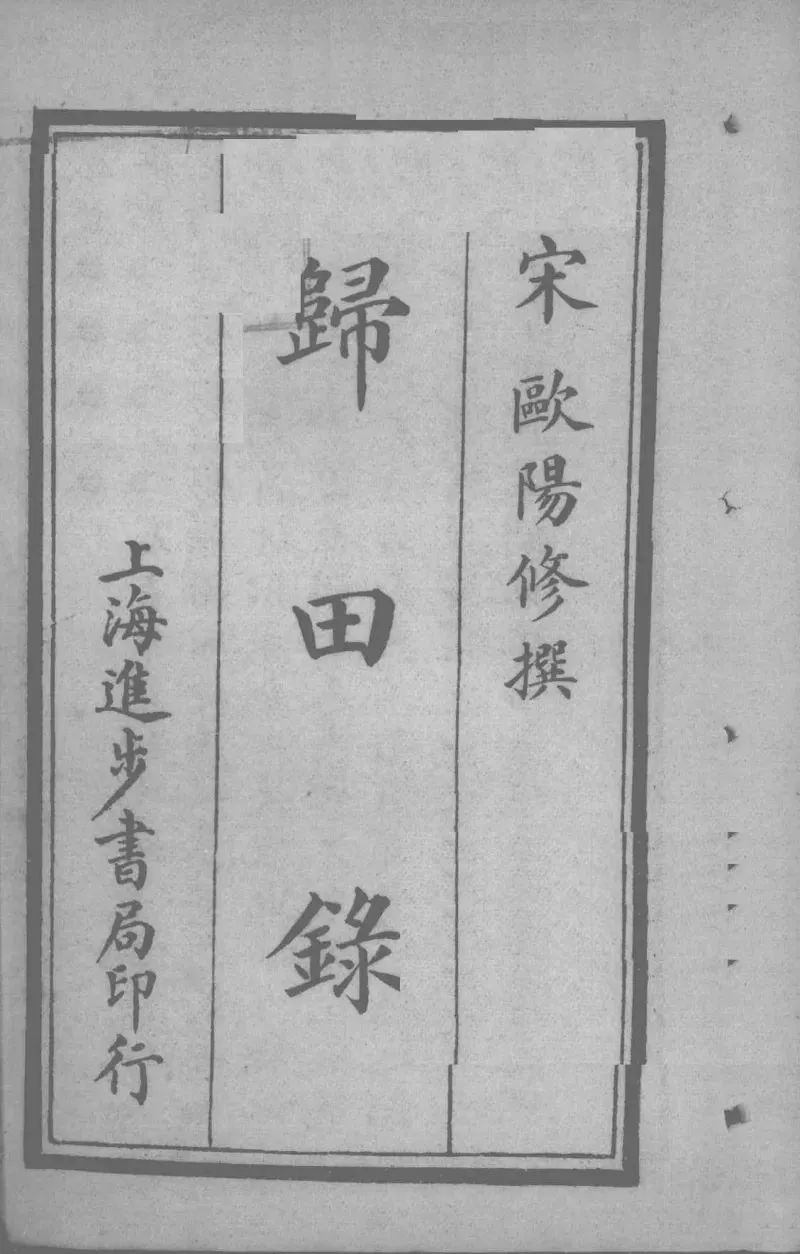 宋歐陽修撰
歸田錄
上海進步書局印行